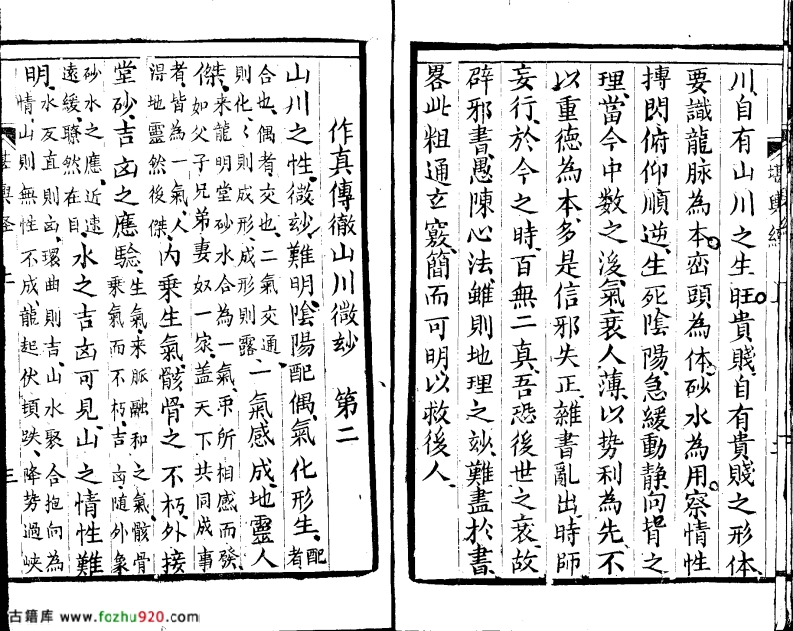 川、自有山川之生旺。貴賤、自有貴賤之形体、
要識龍脉為本。巒頭為体、砂水為用。察情性
摶閃俯仰順逆、生死陰陽、急緩動静、向背之
理、當今中数之後、氣衰人薄、以势利為先、不
以重德為本、多是信邪失正、雜書亂出、時師
妄行、於今之時、百無二真、吾恐後世之衰、故
辟邪書、愚陳心法、雖則地理之玅、難盡於書、
畧此粗通玄竅、簡而可明、以救後人、
堪輿經
作真傳徹山川微玅 第二
山川之性、微玅難明、陰陽配偶、氣化形生、配者
合也、偶者、交也、二氣交通、
則化、〻則成形、成形則露、一氣感成、地靈人
傑、來龍明堂砂水合為一氣、亦所相感而發、
如父子兄弟妻奴一家、盖天下共同成事
者、皆為一氣、人
淂地靈然後傑、內乗生氣、骸骨之不朽、外接
堂砂、吉凶之應驗、生氣、來脉融和之氣、骸骨
乗氣而不朽、吉凶、随外象
砂水之應、近速
遠緩、瞭然在目、水之吉凶可見、山之情性難
明、水反直則凶、環曲則吉、山水聚合抱向為
情、山則無性不成、龍起伏頓跌、降势過峡
堪輿經 上 三
古籍库 www.fozhu920.com